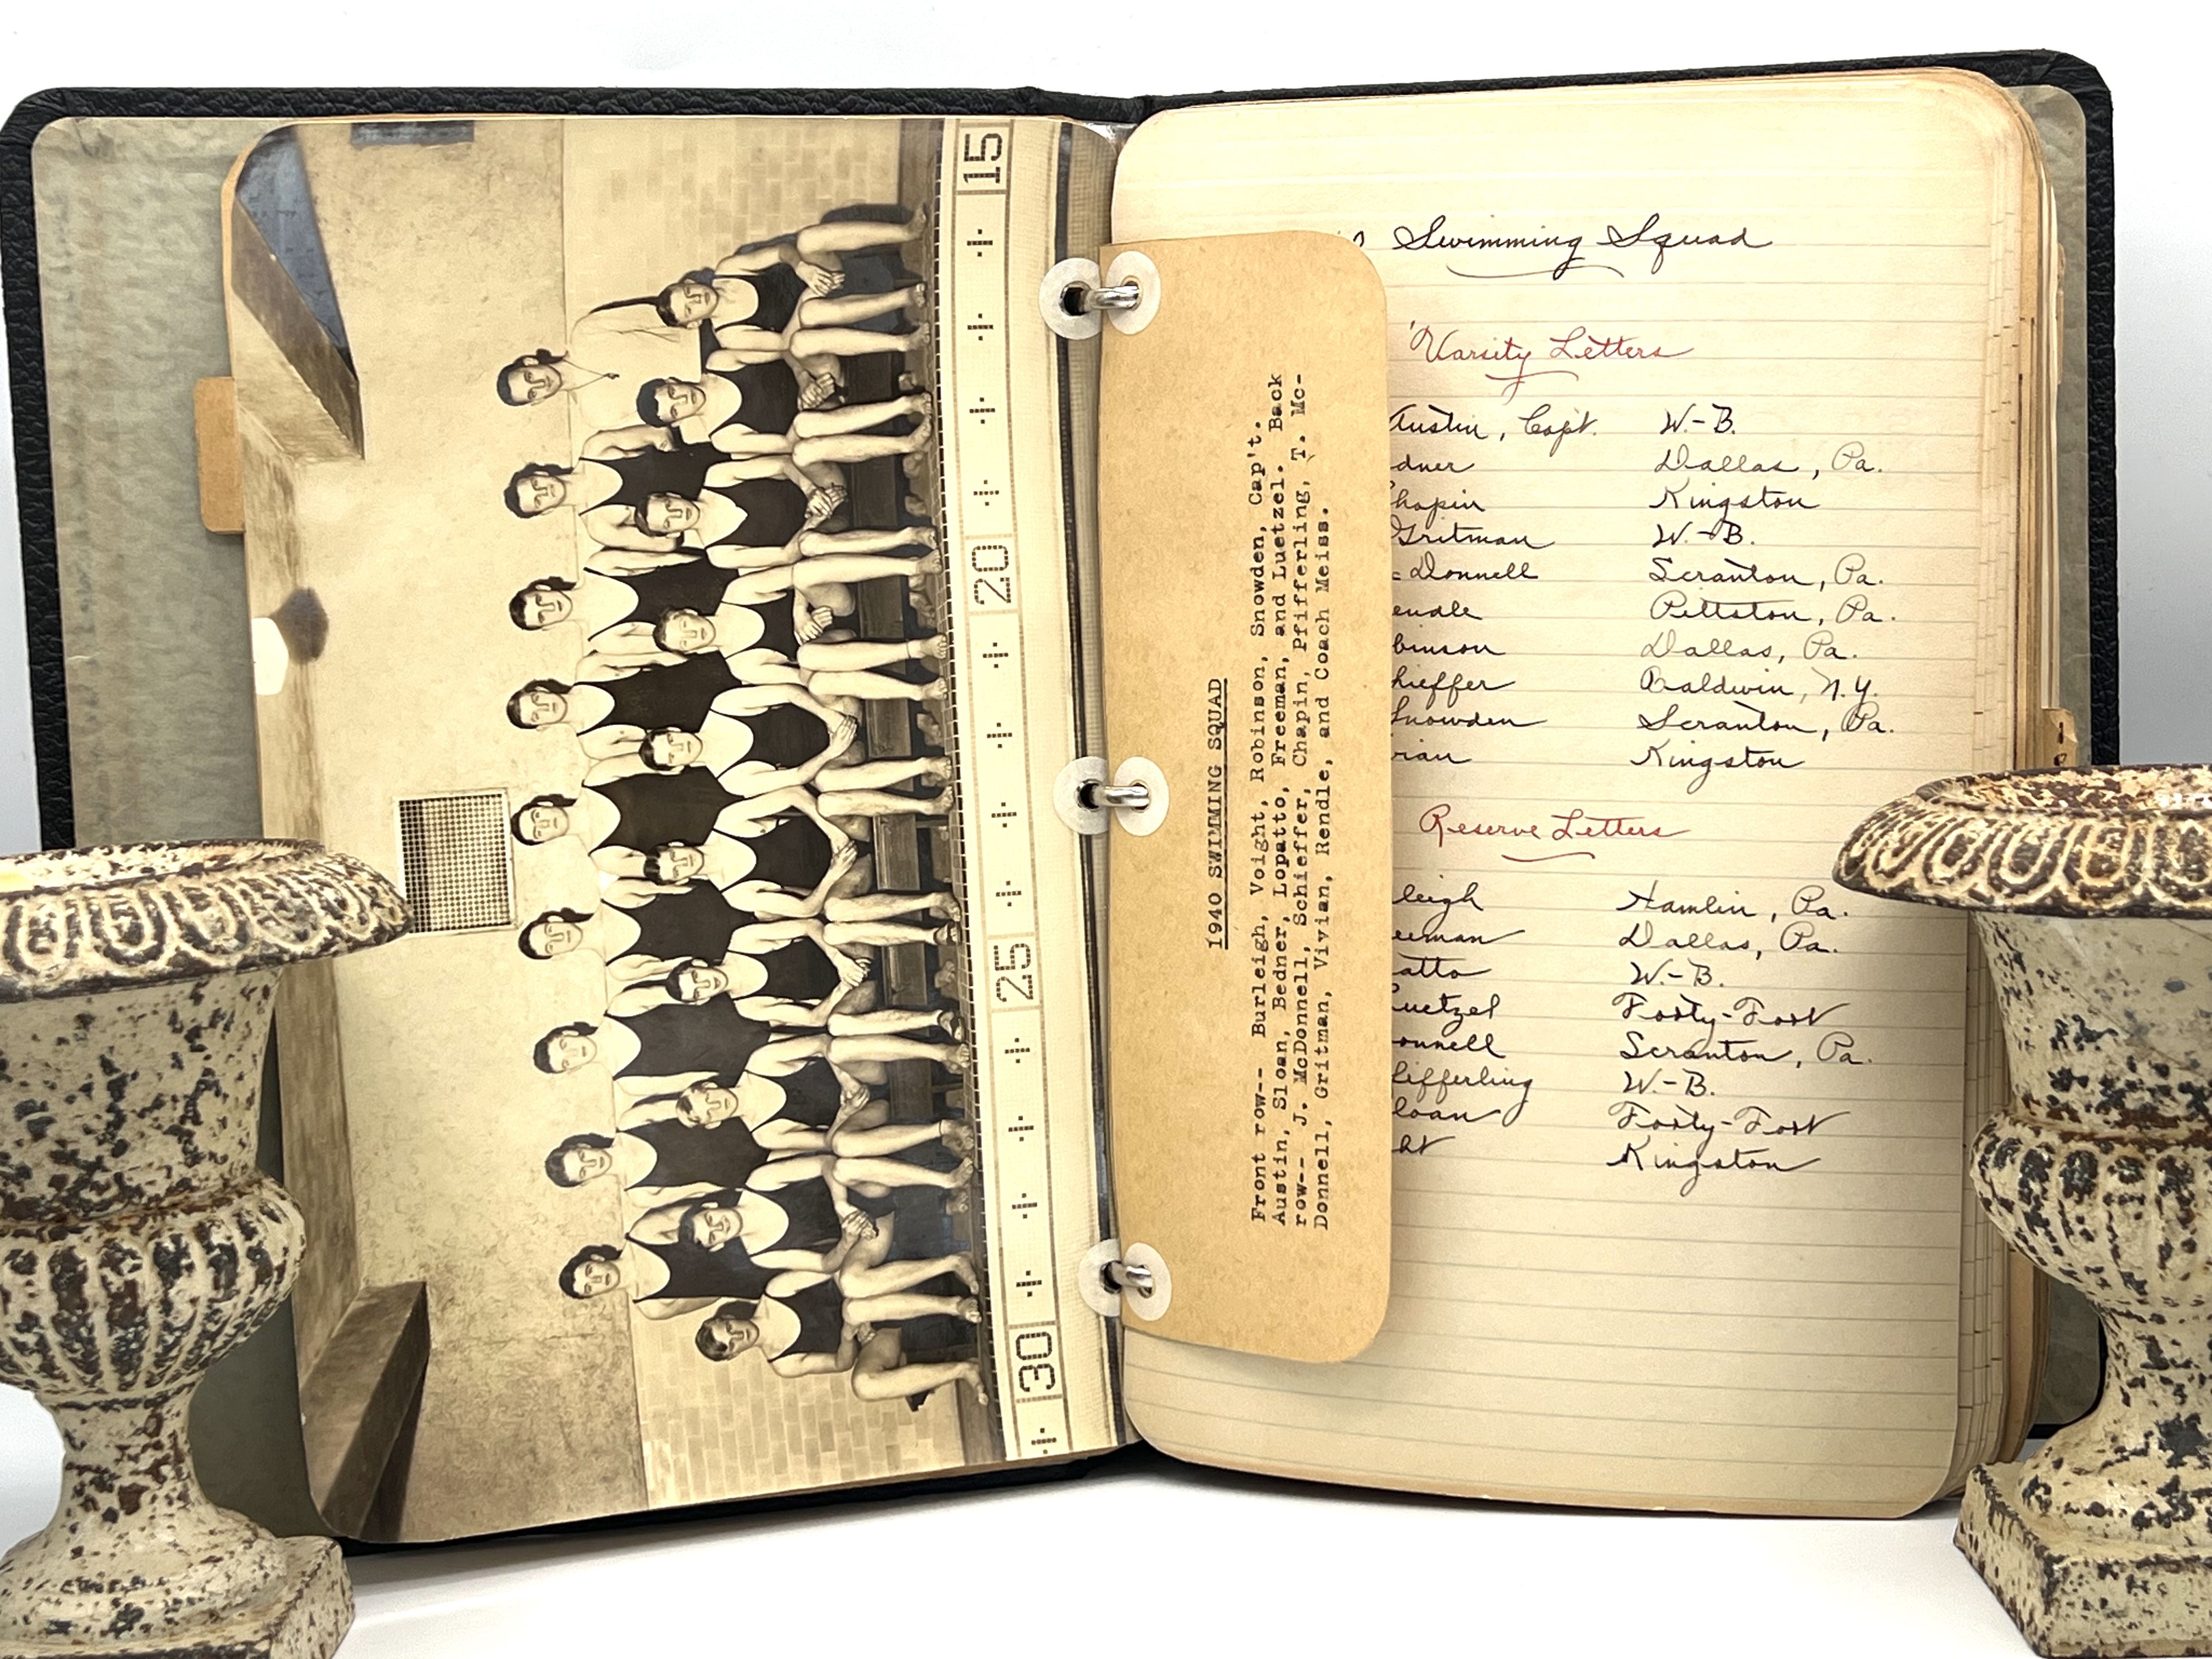 15
20
25
30
1940 SWIMMING SQUAD
Front row-- Burleigh, Voight, Robinson, Snowden, Cap't.
Austin, Sloan, Bedner, Lopatto, Freeman, and Luetzel. Back
row-- J. McDonnell, Schieffer, Chapin, Pfifferling, T. Mc-
Donnell, Gritman, Vivian, Rendle, and Coach Meiss.
Swimming Squad
Varsity Letters
Austin, Capt. W.-B.
dner Dallas, Pa.
hapin Kingston
Gritman W.-B.
Donnell Scranton, Pa.
endle Pittston, Pa.
binson Dallas, Pa.
hieffer Baldwin, N.Y.
Snowden Scranton, Pa.
vian Kingston
Reserve Letters
leigh Hamlin, Pa.
eeman Dallas, Pa.
atto W.-B.
Luetzel Forty-Fort
onnell Scranton, Pa.
fifferling W.-B.
loan Forty-Fort
ht Kingston